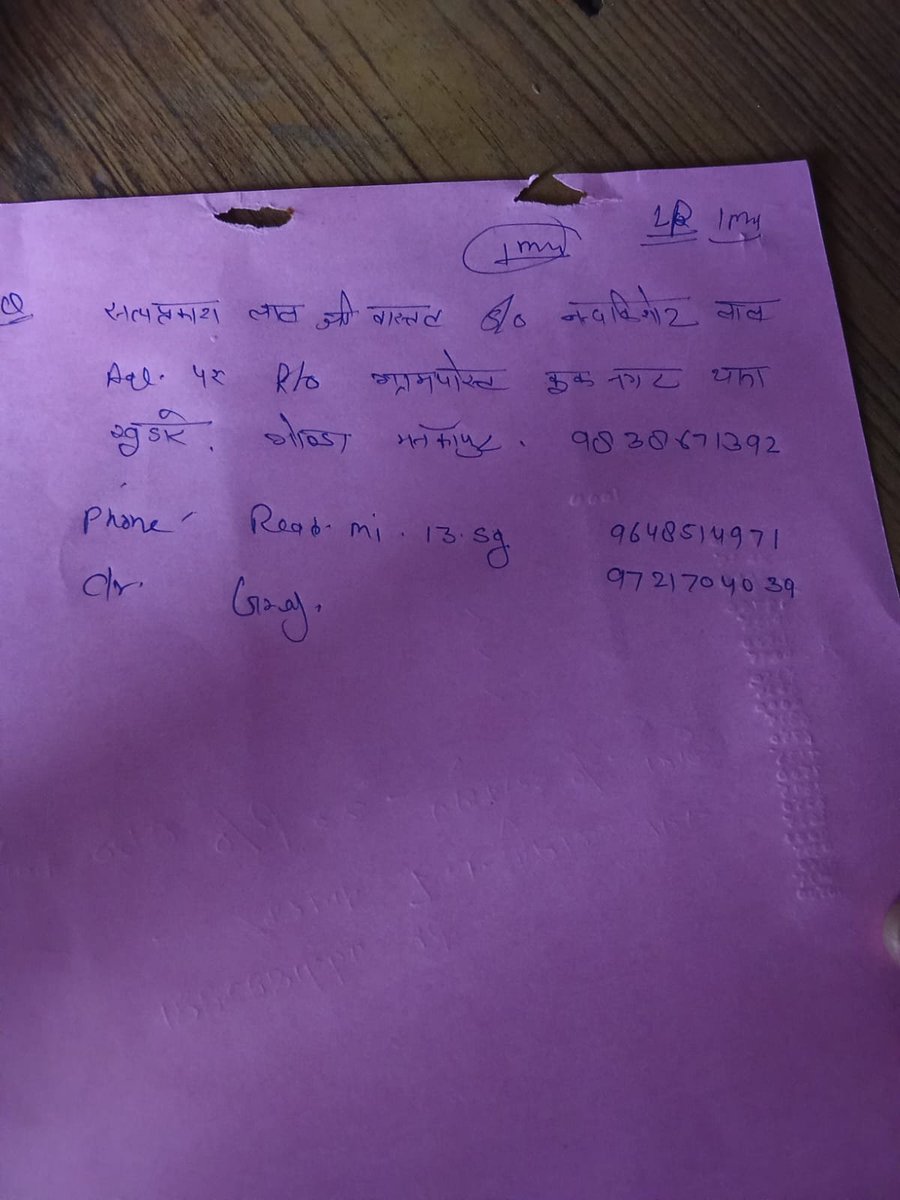 1my
सत्यप्रकाश लाल श्री वास्तव S/o लाल
Age. 42 R/o ग्रामपोस्ट नगर थाना
गोण्डा मनकापुर. 9838671392
Phone Read. mi. 13. 5g 9648514971
Clr. Gray. 9721704039